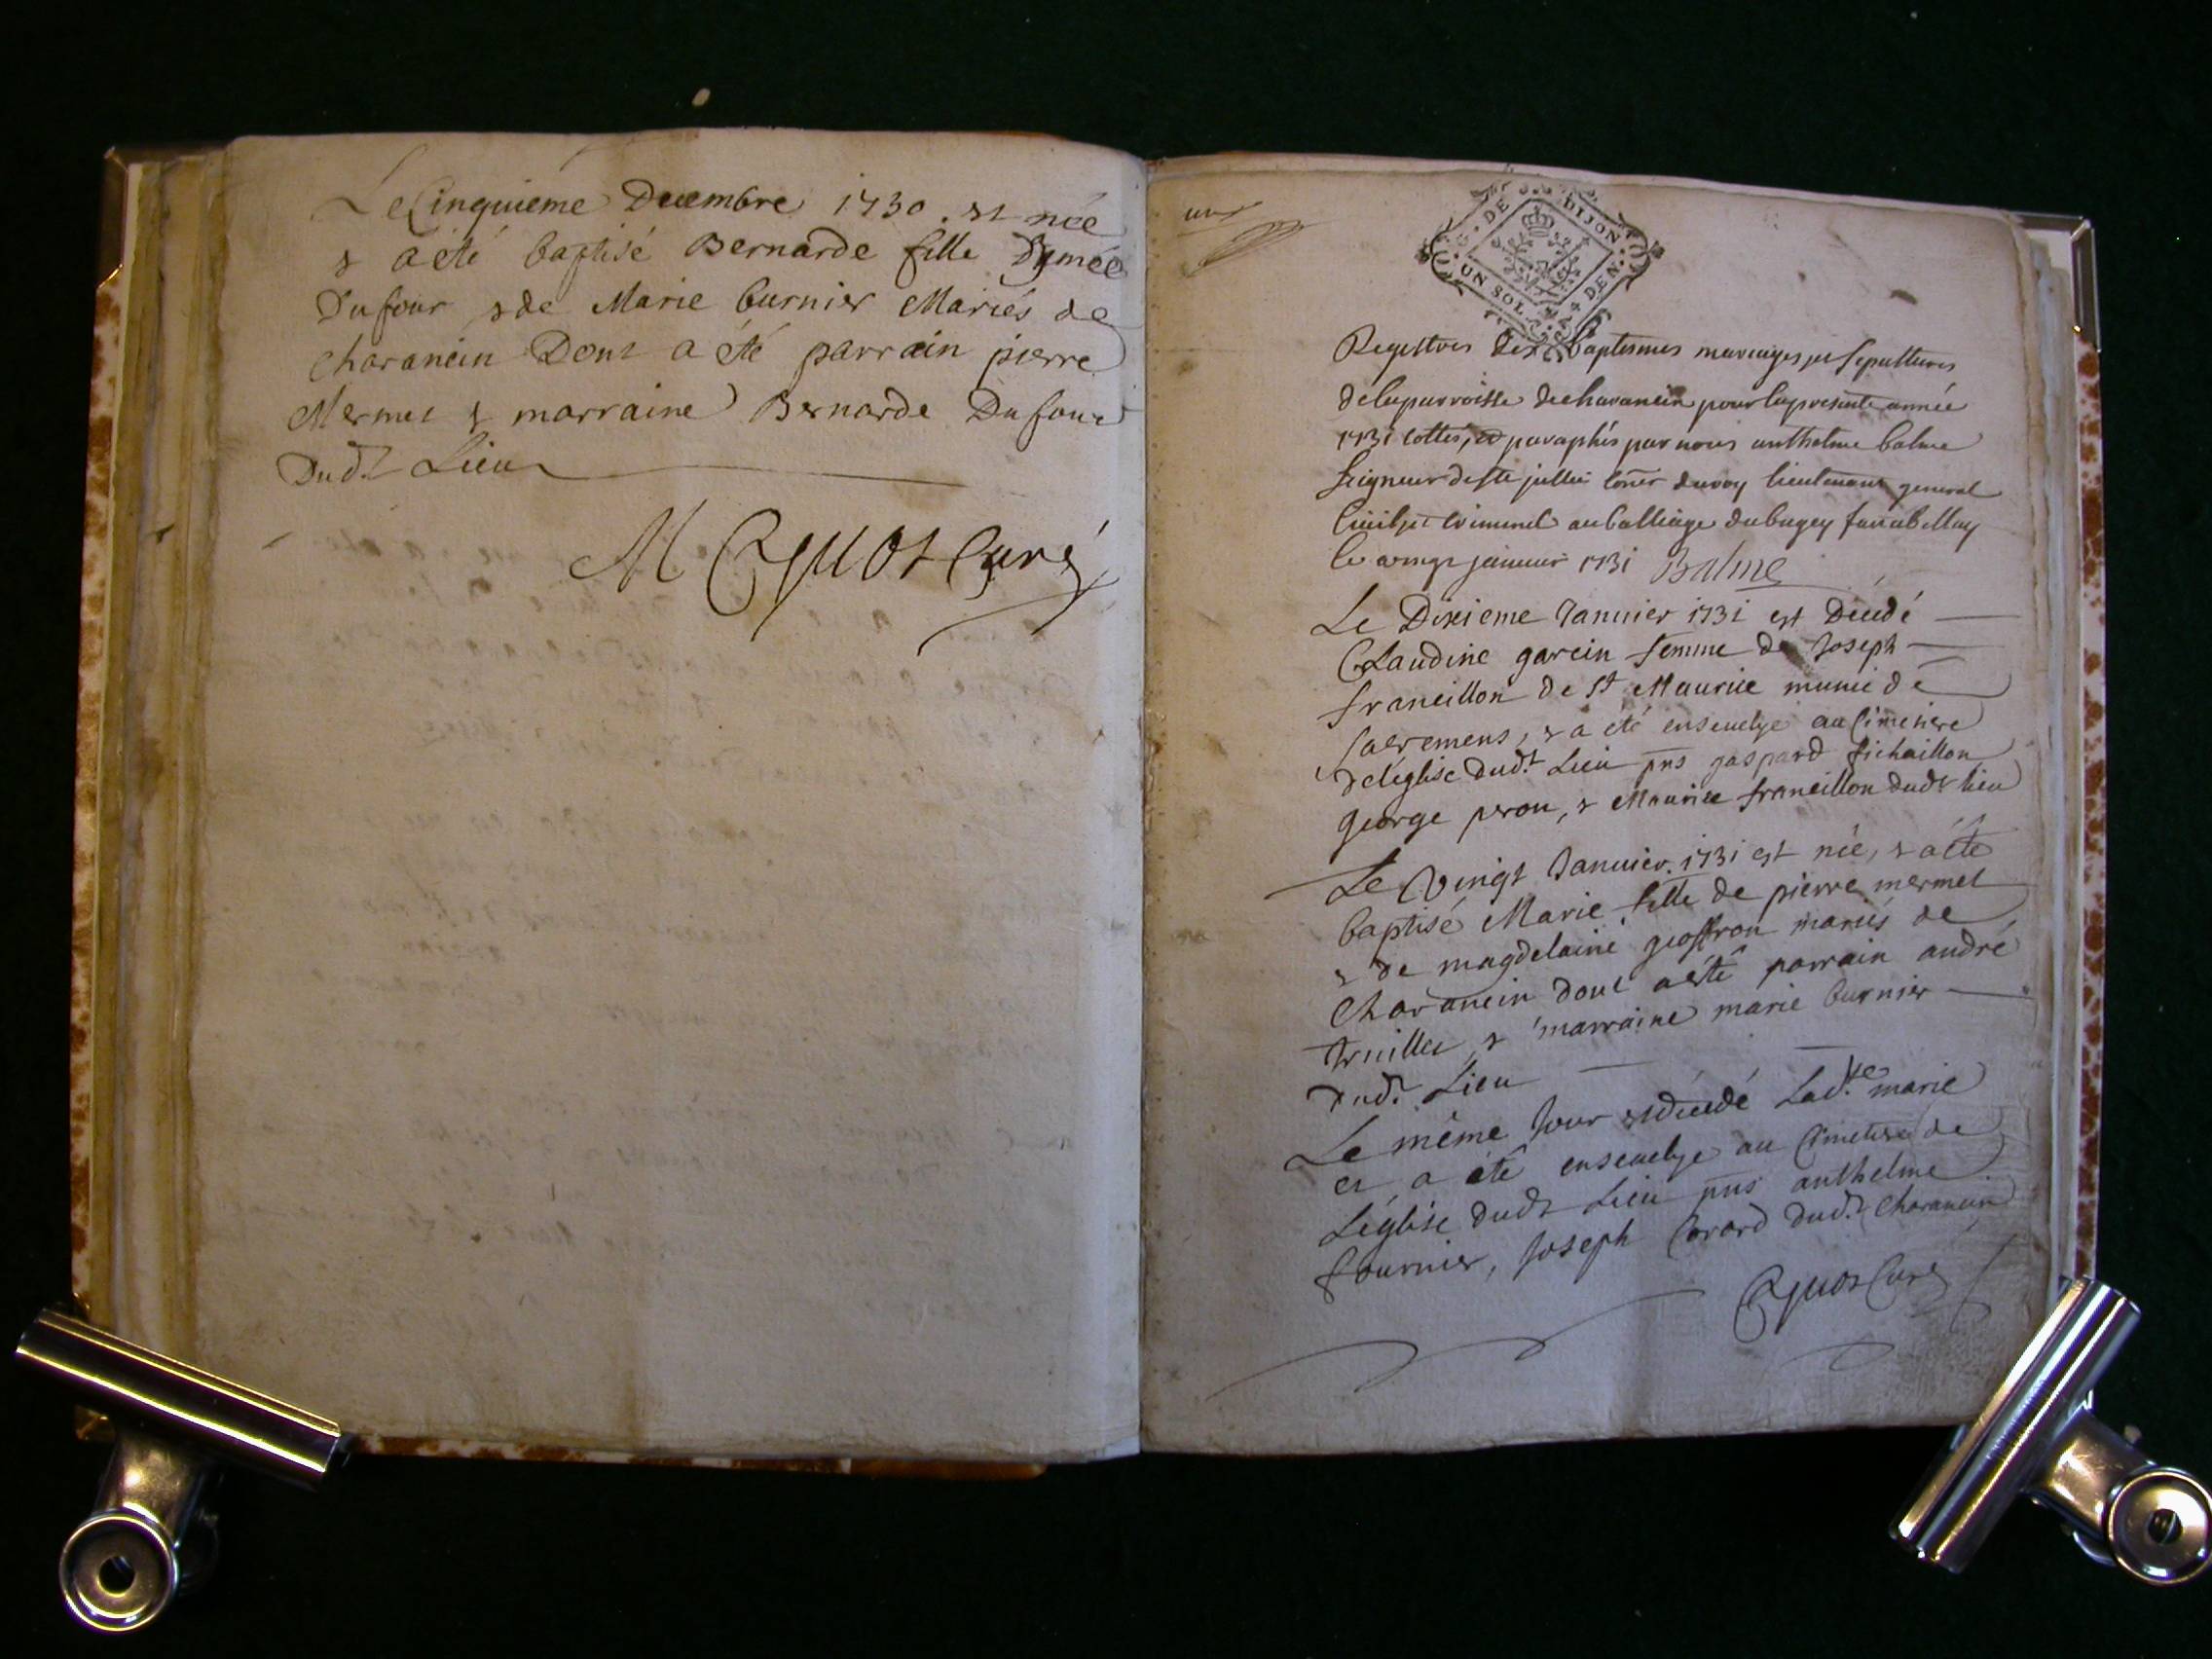 Le Cinquiéme Decembre 1730. est née
& a été baptisé Bernarde fille Dymée
Dufour & de Marie burnier Mariés de
charancin Dont a été parrain pierre
Mermet & marraine Bernarde Dufour
Dud.t Lieu
M Cyuot Curé
un
DE DIJON
UN SOL 4 DEN.
Registres des baptesmes mariages et sepultures
de la parroisse de charancin pour la presente année
1731 cottés, et paraphés par nous anthelme balme
seigneur de ste jullie coner du roy lieutenant general
Civil et criminel au balliage du bugey fait a bellay
le vingt janvier 1731 Balme
Le Dixieme Janvier 1731 est Decedé
Claudine garcin femme de Joseph
francillon de St Maurice munie de
sacremens, & a été ensevelye au Cimetiere
de léglise dud.t Lieu pns gaspard fichaillon
george peron, & Maurice francillon dudt lieu
Le Vingt Janvier 1731 est née, & a été
baptisé Marie fille de pierre mermet
& de magdelaine geoffron mariés de
Charancin dont a esté parrain andré
truillet & marraine marie burnier
Dud.t Lieu
Le méme Jour est décedé Lad.te marie
et a été ensevelye au Cimetiere de
Léglise dudt Lieu pns anthelme
fournier, Joseph Cavard dud.t Charancin
Cyuot Curé